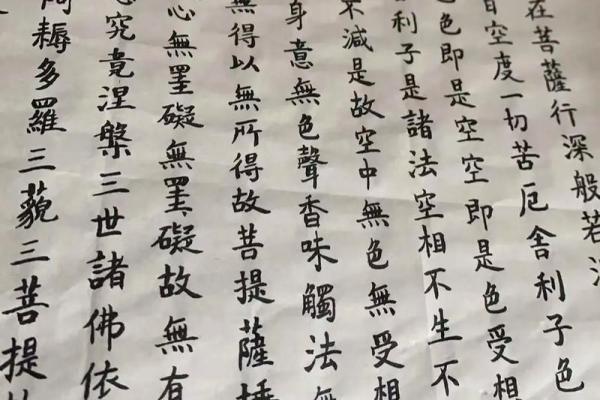 在菩薩行深般若
空度一切苦厄舍利子色
色即是空空即是色受
利子是諸法空相不生不
不減是故空中無色無受
身意無色聲香味觸法無
無得以無所得故菩提薩埵
心無罣礙無罣礙故無有
究竟涅槃三世諸佛依
耨多羅三藐三菩提